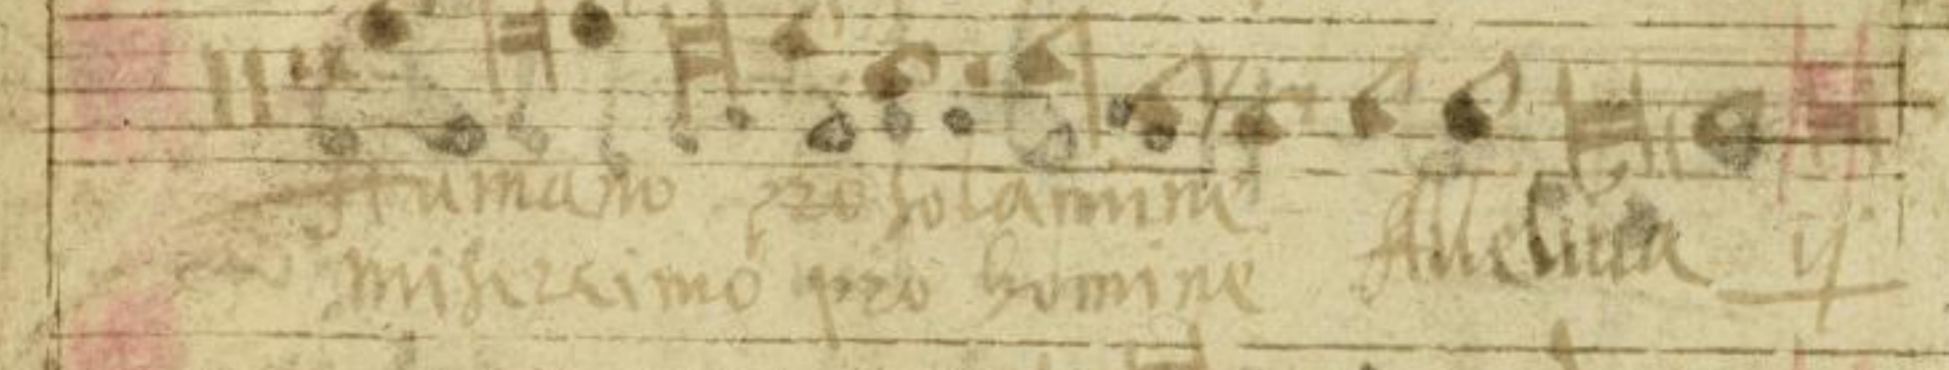 Humano pro solamine Alleluia ij
miserrimo pro homine